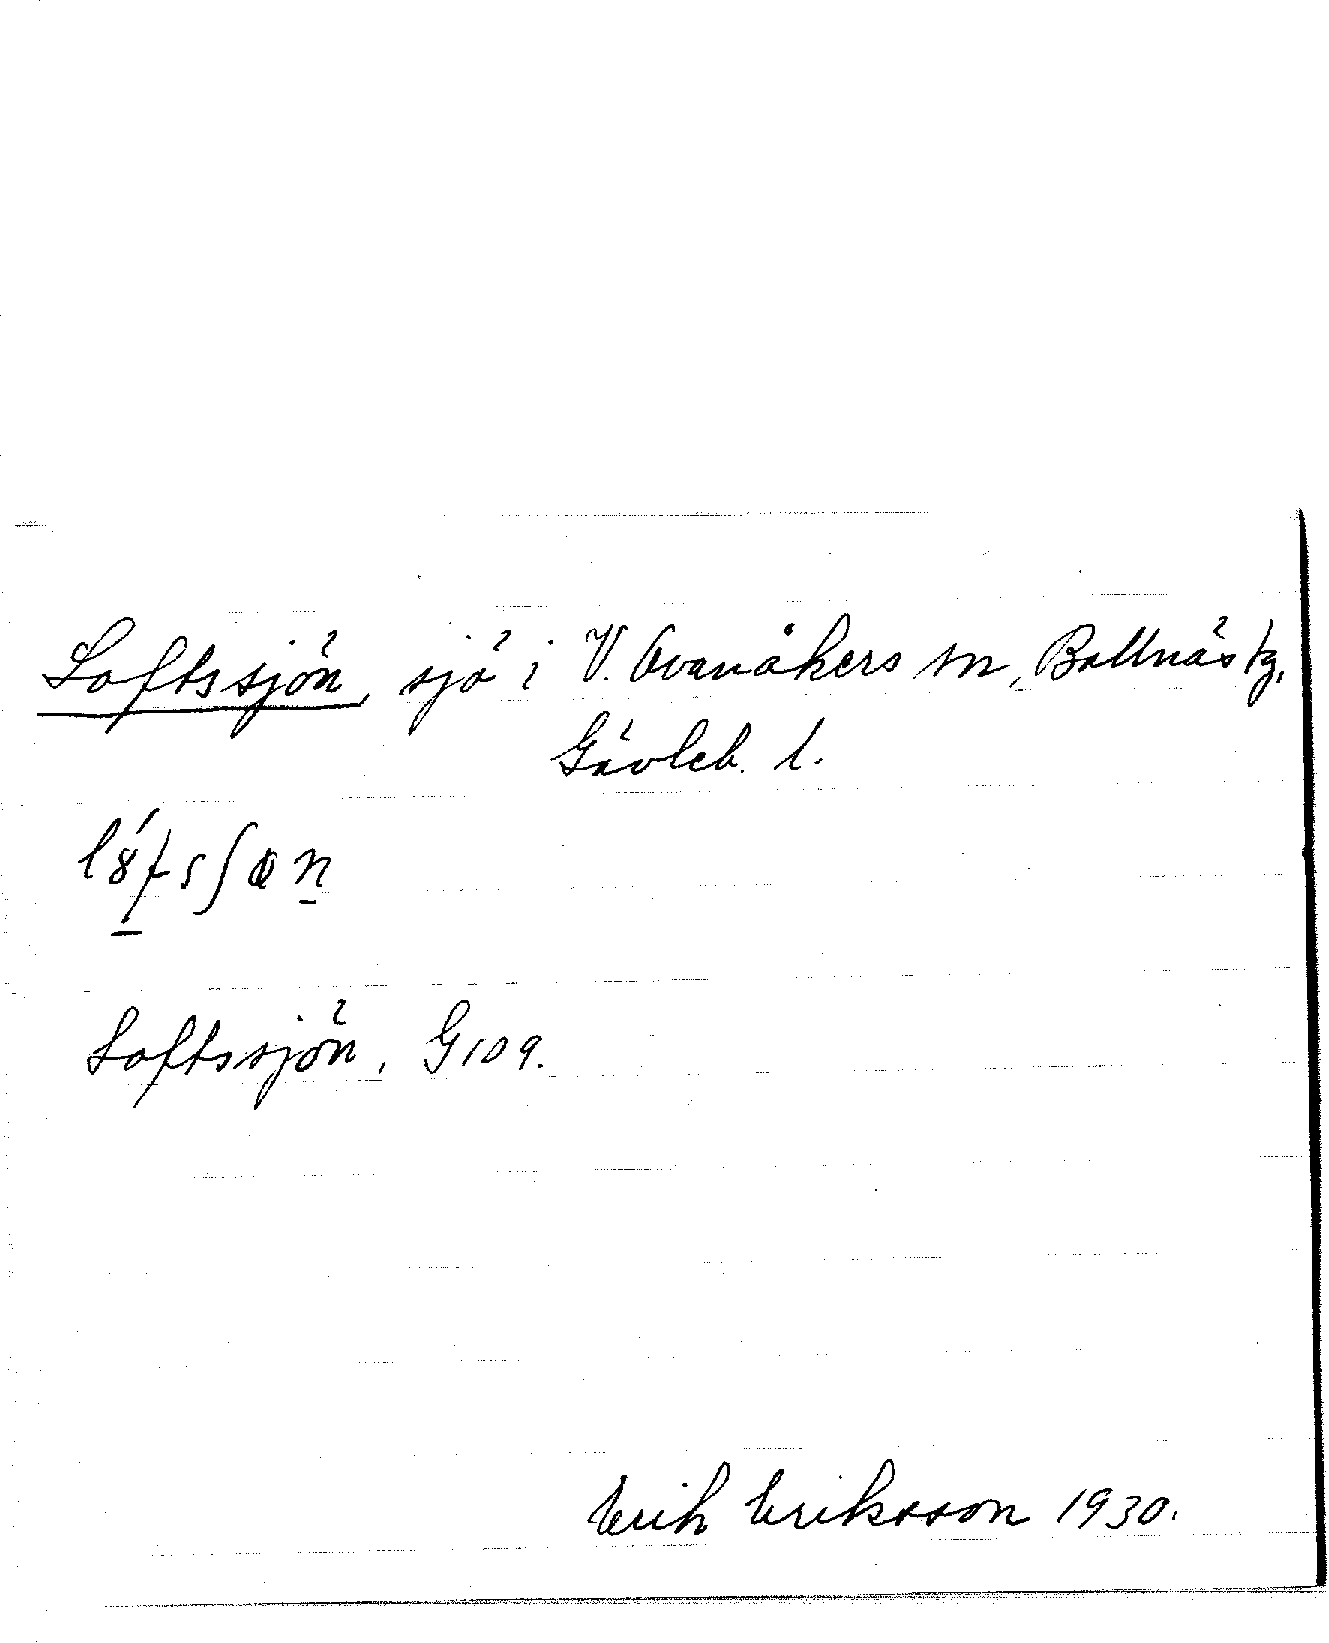 Loftssjön, sjö i V. Ovanåkers sn, Bollnäs tg,
Gävleb. l.
Loftssjön, G109.
Erik Eriksson 1930.